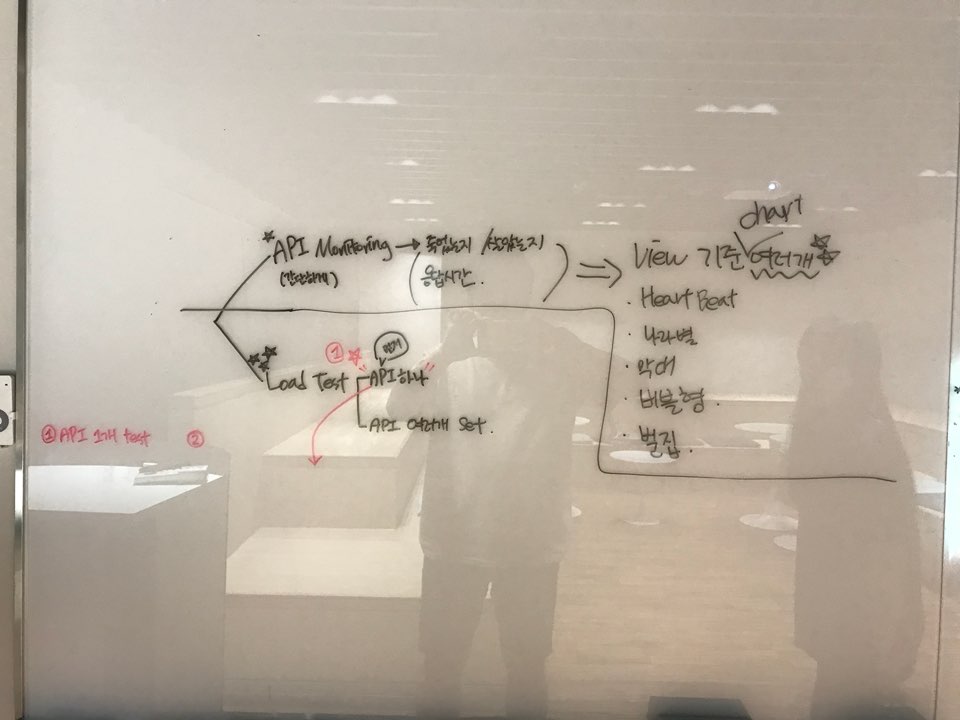 chart
API Monitering → 죽었는지 / 살았는지
(간단하게)
(응답시간.)
⇒ View 기준 여러개
· Heart Beat
· 나라별
· 악어
· 버블형.
· 벌집.
Load Test
①
먼저
"API 하나"
API 여러개 Set.
① API 1개 test
②